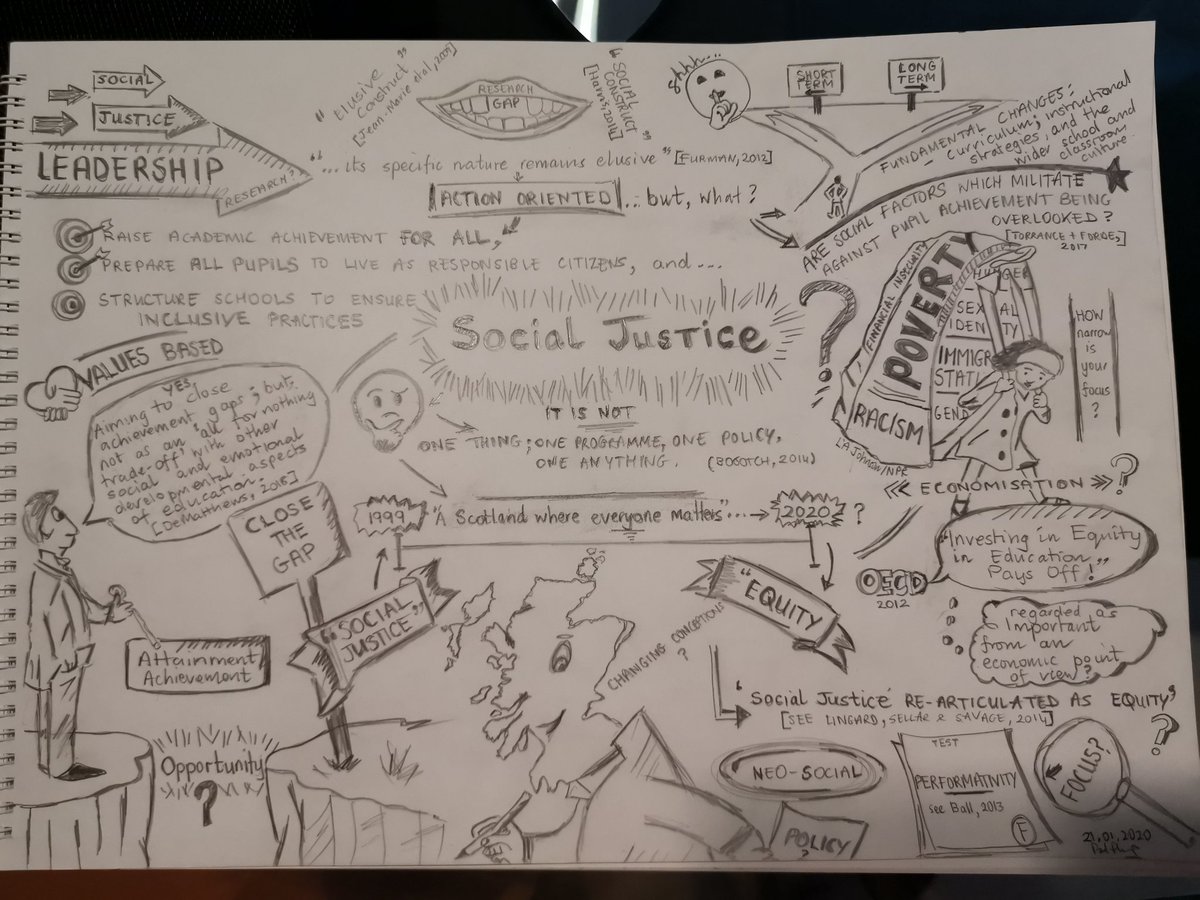 SOCIAL
JUSTICE
LEADERSHIP
RESEARCH?
"Elusive
construct"
[Jean-Marie et al, 2009]
RESEARCH
GAP
"SOCIAL
CONSTRUCT"
[Harris, 2014]
"... its specific nature remains elusive" [FURMAN, 2012]
ACTION ORIENTED ... but, what?
RAISE ACADEMIC ACHIEVEMENT FOR ALL,
PREPARE ALL PUPILS TO LIVE AS RESPONSIBLE CITIZENS, and ...
STRUCTURE SCHOOLS TO ENSURE
INCLUSIVE PRACTICES
Shhh....
SHORT
TERM
LONG
TERM
FUNDAMENTAL CHANGES:
- curriculum; instructional
strategies, and the
wider school and
classroom
culture
ARE SOCIAL FACTORS WHICH MILITATE
AGAINST PUPIL ACHIEVEMENT BEING
OVERLOOKED?
[TORRANCE + FORDE,
2017]
Social Justice
?
IT IS NOT
ONE THING; ONE PROGRAMME, ONE POLICY,
ONE ANYTHING. (BOGOTCH, 2014)
FINANCIAL INSECURITY
POVERTY
HUNGER
SEX AL
IDEN TITY
IMMIGR
STATU
GEND
RACISM
LA Johnson/NPR
HOW
narrow
is
your
focus
?
VALUES BASED
YES,
Aiming to close
achievement gaps; but
not as an 'all for nothing
trade-off' with other
social and emotional
developmental aspects
of education.
[DeMatthews, 2015]
CLOSE
THE
GAP
Attainment
Achievement
Opportunity
?
1999 "A Scotland where everyone matters"... 2020 ?
"SOCIAL
JUSTICE"
"EQUITY"
CHANGING CONCEPTIONS
?
<< ECONOMISATION >> ?
"Investing in Equity
in Education
Pays Off!"
OECD
2012
regarded as
Important
from an
economic point
of view?
'Social Justice' RE-ARTICULATED AS EQUITY'
[SEE LINGARD, SELLAR & SAVAGE, 2014]
?
NEO-SOCIAL
POLICY
?
TEST
PERFORMATIVITY
see Ball, 2013
F
FOCUS?
21.01.2020